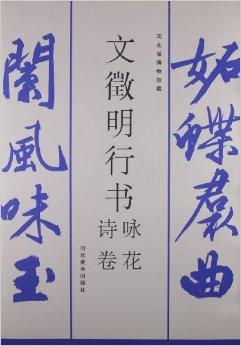 河北省博物馆藏
文徵明行书
咏花
诗卷
河北美术出版社
妬蝶裙曲
阑风味玉